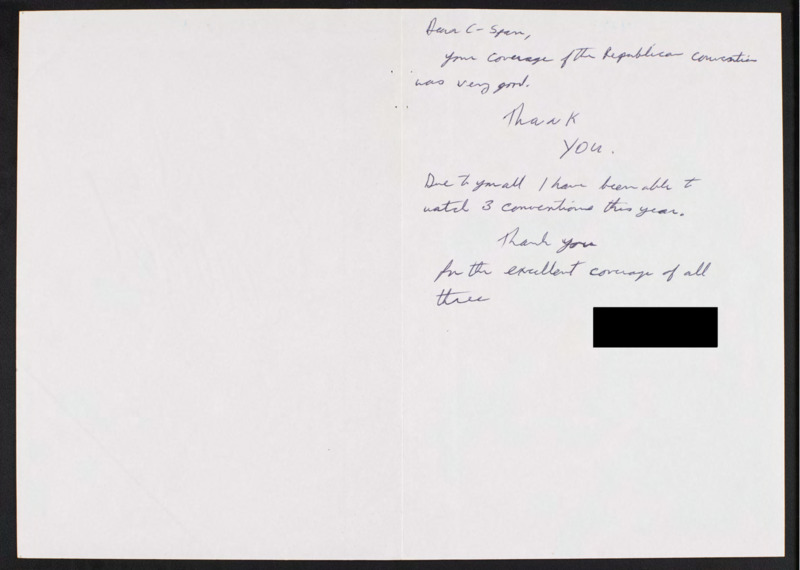 Dear C-Span,
your coverage of the Republican convention
was very good.
Thank
YOU.
Due to you all I have been able to
watch 3 conventions this year.
Thank you
for the excellent coverage of all
three